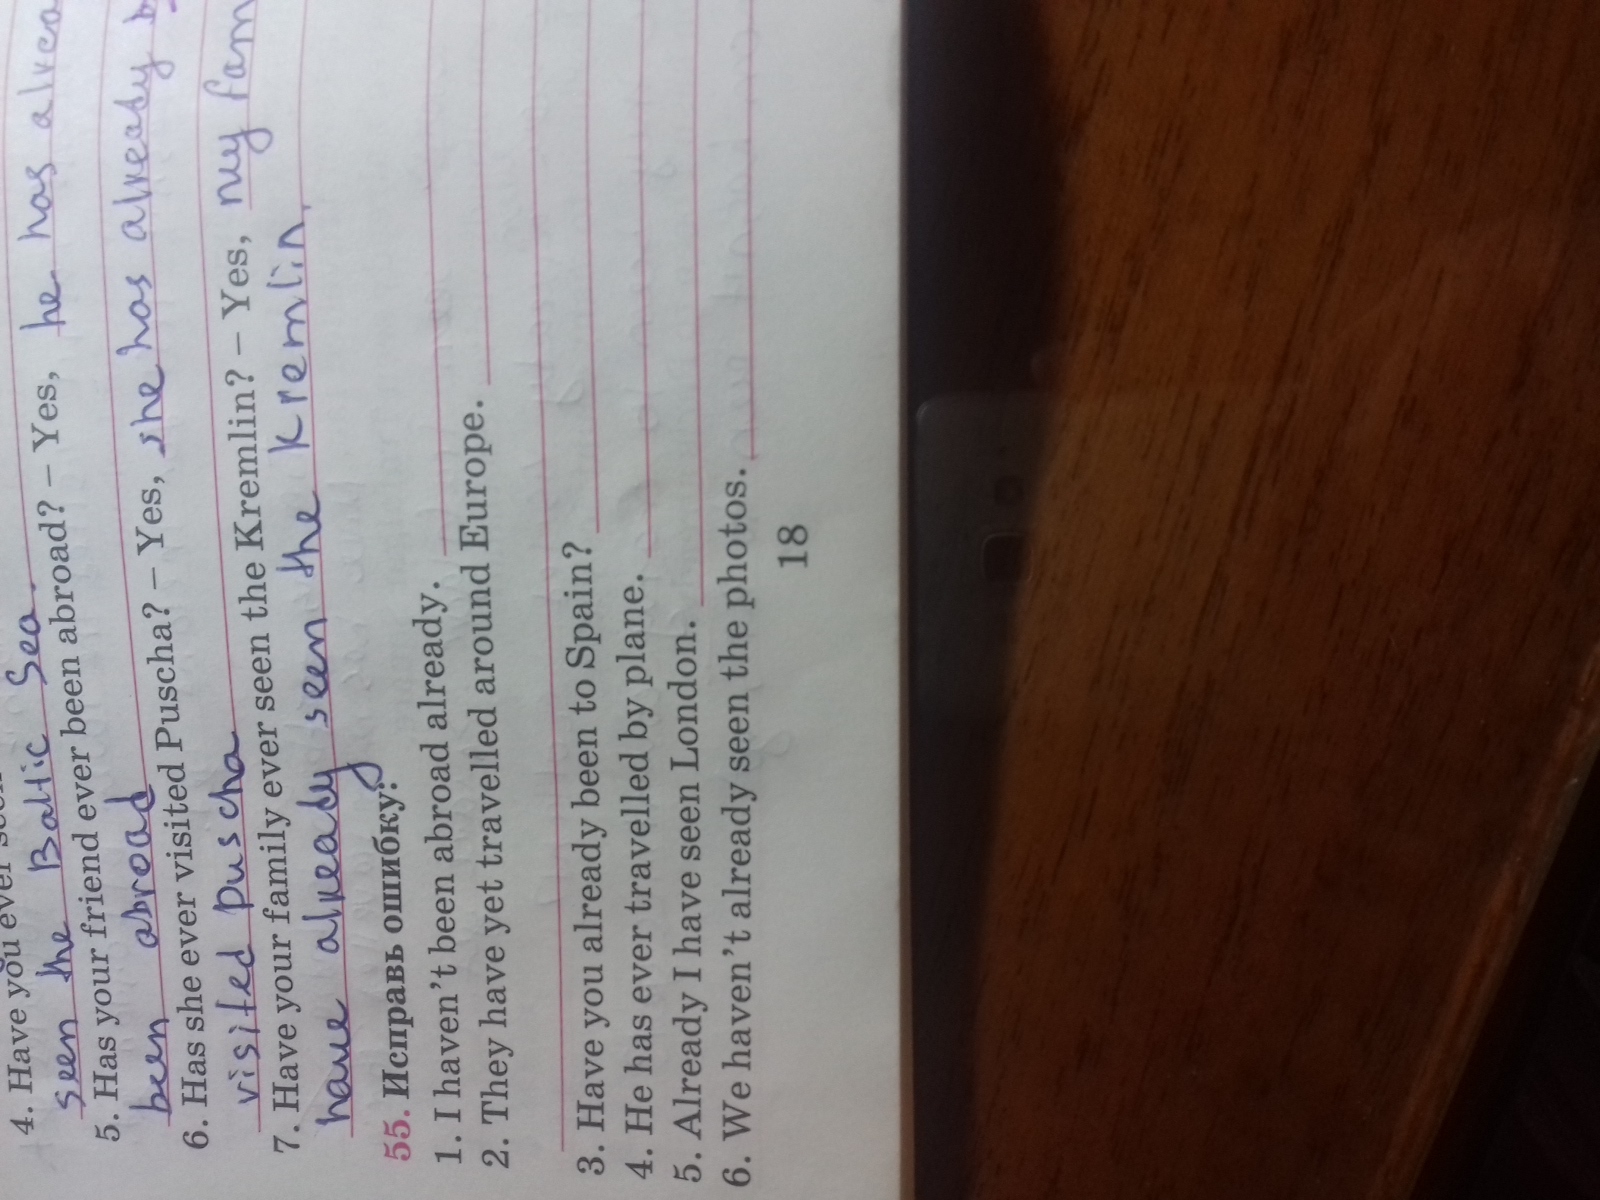 4. Have you ever
seen the Baltic Sea. – Yes, he has
5. Has your friend ever been abroad? – Yes, she has already
been abroad
6. Has she ever visited Puscha? – Yes, my
visited puscha
7. Have your family ever seen the Kremlin? – Yes,
have already seen the kremlin.
55. Исправь ошибку.
1. I haven't been abroad already.
2. They have yet travelled around Europe.
3. Have you already been to Spain?
4. He has ever travelled by plane.
5. Already I have seen London.
6. We haven't already seen the photos.
18